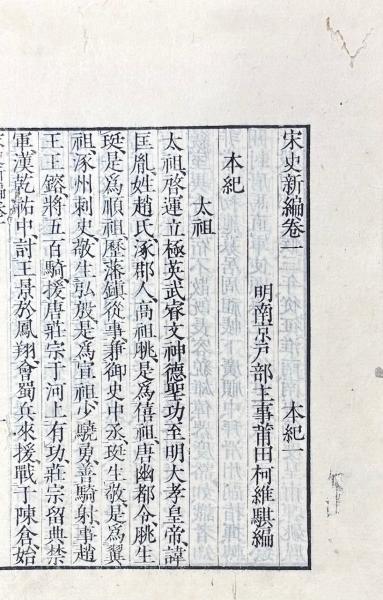 宋史新編卷一 本紀一
明南京戸部主事莆田柯維騏編
本紀
太祖
太祖啓運立極英武睿文神德聖功至明大孝皇帝諱
匡胤姓趙氏涿郡人高祖朓是爲僖祖唐幽都令朓生
珽是爲順祖歷藩鎮從事兼御史中丞珽生敬是爲翼
祖涿州刺史敬生弘殷是爲宣祖少驍勇善騎射事趙
王王鎔將五百騎援唐莊宗于河上有功莊宗留典禁
軍漢乾祐中討王景於鳳翔會蜀兵來援戰于陳倉始